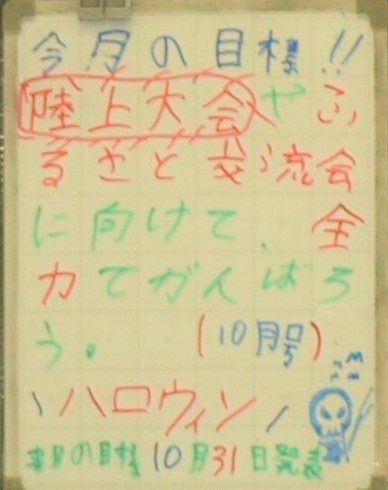 今月の目標!!
陸上大会やふ
るさと交流会
に向けて、全
力でがんばろ
う。(10月号)
\ハロウィン/
来月の目標10月31日発表